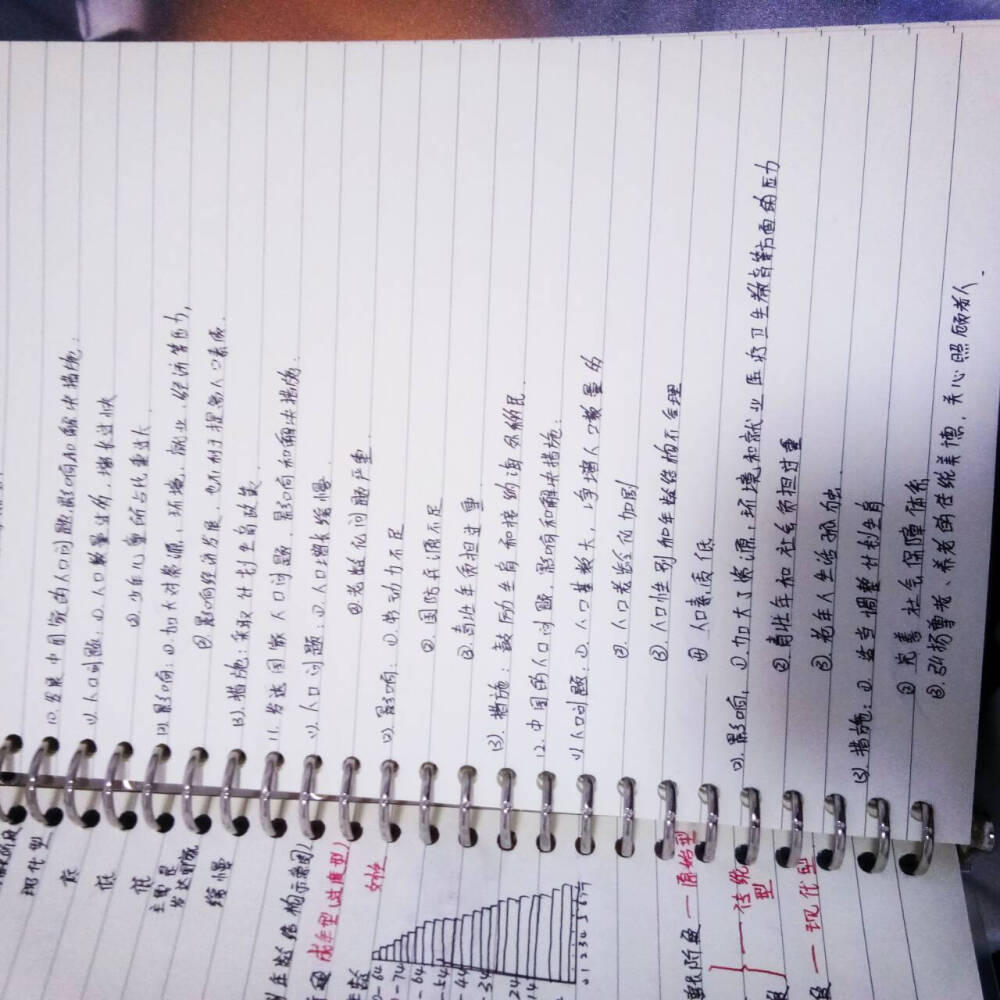 10. 发展中国家的人口问题影响和解决措施：
(1). 人口问题：①. 人口数量过多，增长过快
②. 少年儿童所占比重过大
(2). 影响：①. 加大对资源、环境、就业、经济等压力，
②. 影响经济发展，也不利于提高人口素质.
(3). 措施：采取计划生育政策
11. 发达国家人口问题、影响和解决措施
(1). 人口问题：①. 人口增长缓慢
②. 老龄化问题严重.
(2). 影响：①. 劳动力不足
②. 国防兵源不足
③. 青壮年负担过重
(3). 措施：鼓励生育和接纳海外移民
12. 中国的人口问题、影响和解决措施：
(1) 人口问题：①. 人口基数大，净增人口数量多
②. 人口老龄化加剧
③. 人口性别和年龄结构不合理
④ 人口素质低
(2). 影响：①. 加大了资源、环境和就业医疗卫生教育等方面的压力
② 青壮年和社会负担过重
③ 老年人生活孤独
(3). 措施：①. 适当调整计划生育
② 完善社会保障体系
③. 弘扬尊老、养老的传统美德，关心照顾老人.
现代型
低
低
低
主要是
发达国家
缓慢
年龄结构示意图)
成年型(过渡型)
女性
年龄
阶段 — 原始型
— 传统型
— 现代型